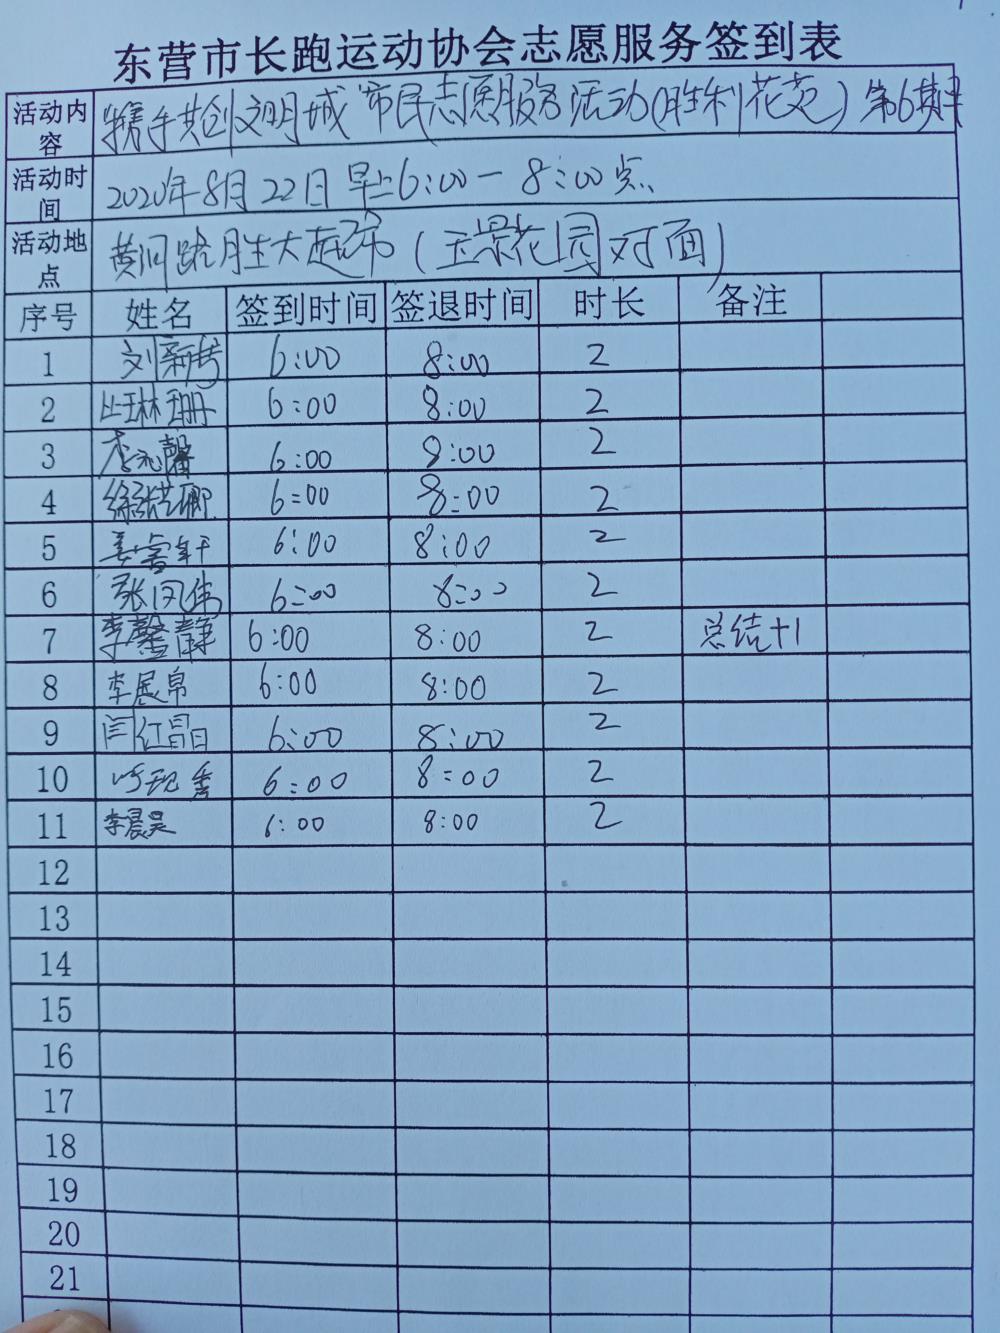 东营市长跑运动协会志愿服务签到表
活动内容 携手共创文明城 市民志愿服务活动(胜利花苑) 第6期
活动时间 2020年8月22日早上6:00-8:00点
活动地点 黄河路胜大超市(玉景花园对面)
序号 姓名 签到时间 签退时间 时长 备注
1 6:00 8:00 2
2 6:00 8:00 2
3 李沁馨 6:00 8:00 2
4 6:00 8:00 2
5 6:00 8:00 2
6 张凤伟 6:00 8:00 2
7 李馨静 6:00 8:00 2 总结+1
8 李展帛 6:00 8:00 2
9 闫红晶 6:00 8:00 2
10 6:00 8:00 2
11 李晨昊 6:00 8:00 2
12
13
14
15
16
17
18
19
20
21